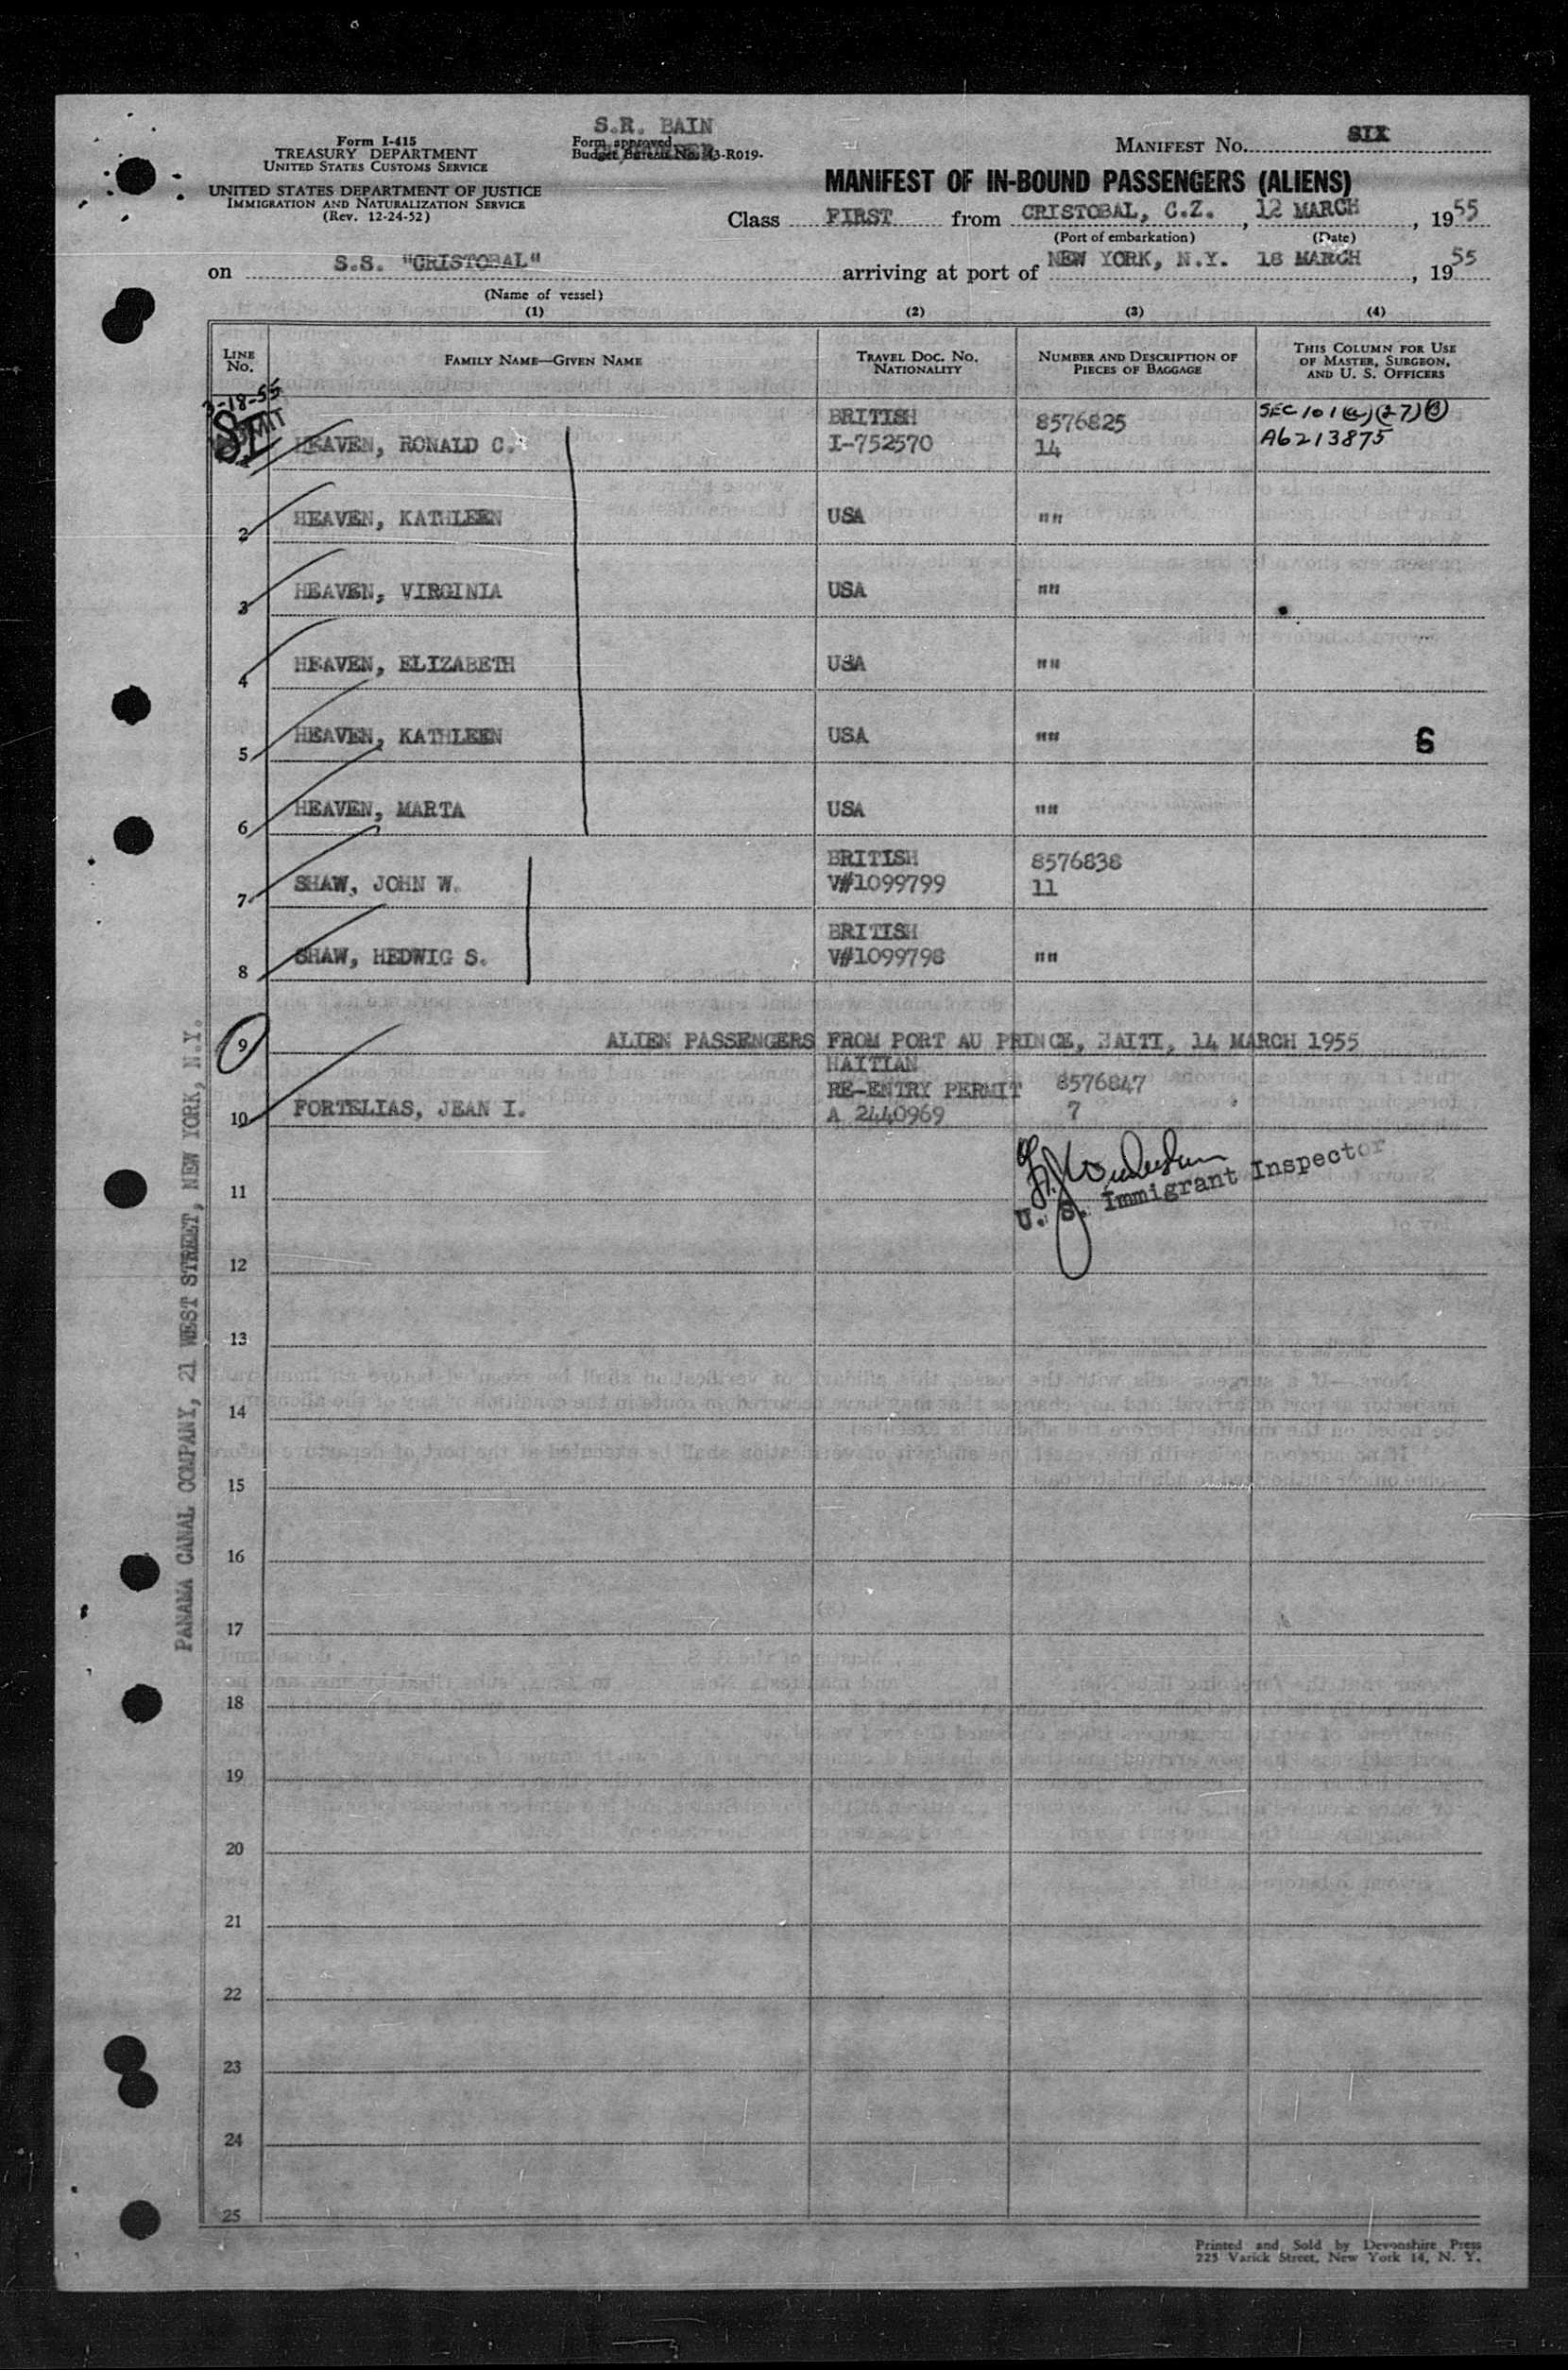 S.R. BAIN
Form I-415
TREASURY DEPARTMENT
UNITED STATES CUSTOMS SERVICE
UNITED STATES DEPARTMENT OF JUSTICE
IMMIGRATION AND NATURALIZATION SERVICE
(Rev. 12-24-52)
Form approved
Budget Bureau No. 43-R019-
MANIFEST NO. SIX
MANIFEST OF IN-BOUND PASSENGERS (ALIENS)
Class FIRST from CRISTOBAL, C.Z., 12 MARCH, 1955
(Port of embarkation) (Date)
on S.S. "CRISTOBAL" arriving at port of NEW YORK, N.Y. 18 MARCH, 1955
(Name of vessel)
(1) (2) (3) (4)
LINE NO. FAMILY NAME—GIVEN NAME TRAVEL DOC. NO. NATIONALITY NUMBER AND DESCRIPTION OF PIECES OF BAGGAGE THIS COLUMN FOR USE OF MASTER, SURGEON, AND U. S. OFFICERS
3-18-55
BRITISH 8576825 SEC 101(a)(27)(B)
HEAVEN, RONALD C. I-752570 14 A6213875
2 HEAVEN, KATHLEEN USA ""
3 HEAVEN, VIRGINIA USA ""
4 HEAVEN, ELIZABETH USA ""
5 HEAVEN, KATHLEEN USA "" 6
6 HEAVEN, MARTA USA ""
BRITISH 8576838
7 SHAW, JOHN W. V#1099799 11
BRITISH
8 SHAW, HEDWIG S. V#1099798 ""
9 ALIEN PASSENGERS FROM PORT AU PRINCE, HAITI, 14 MARCH 1955
HAITIAN
RE-ENTRY PERMIT 8576847
10 FORTELIAS, JEAN I. A 2440969 7
U. S. Immigrant Inspector
11
12
13
14
15
16
17
18
19
20
21
22
23
24
25
PANAMA CANAL COMPANY, 21 WEST STREET, NEW YORK, N.Y.
Printed and Sold by Devonshire Press
225 Varick Street, New York 14, N. Y.